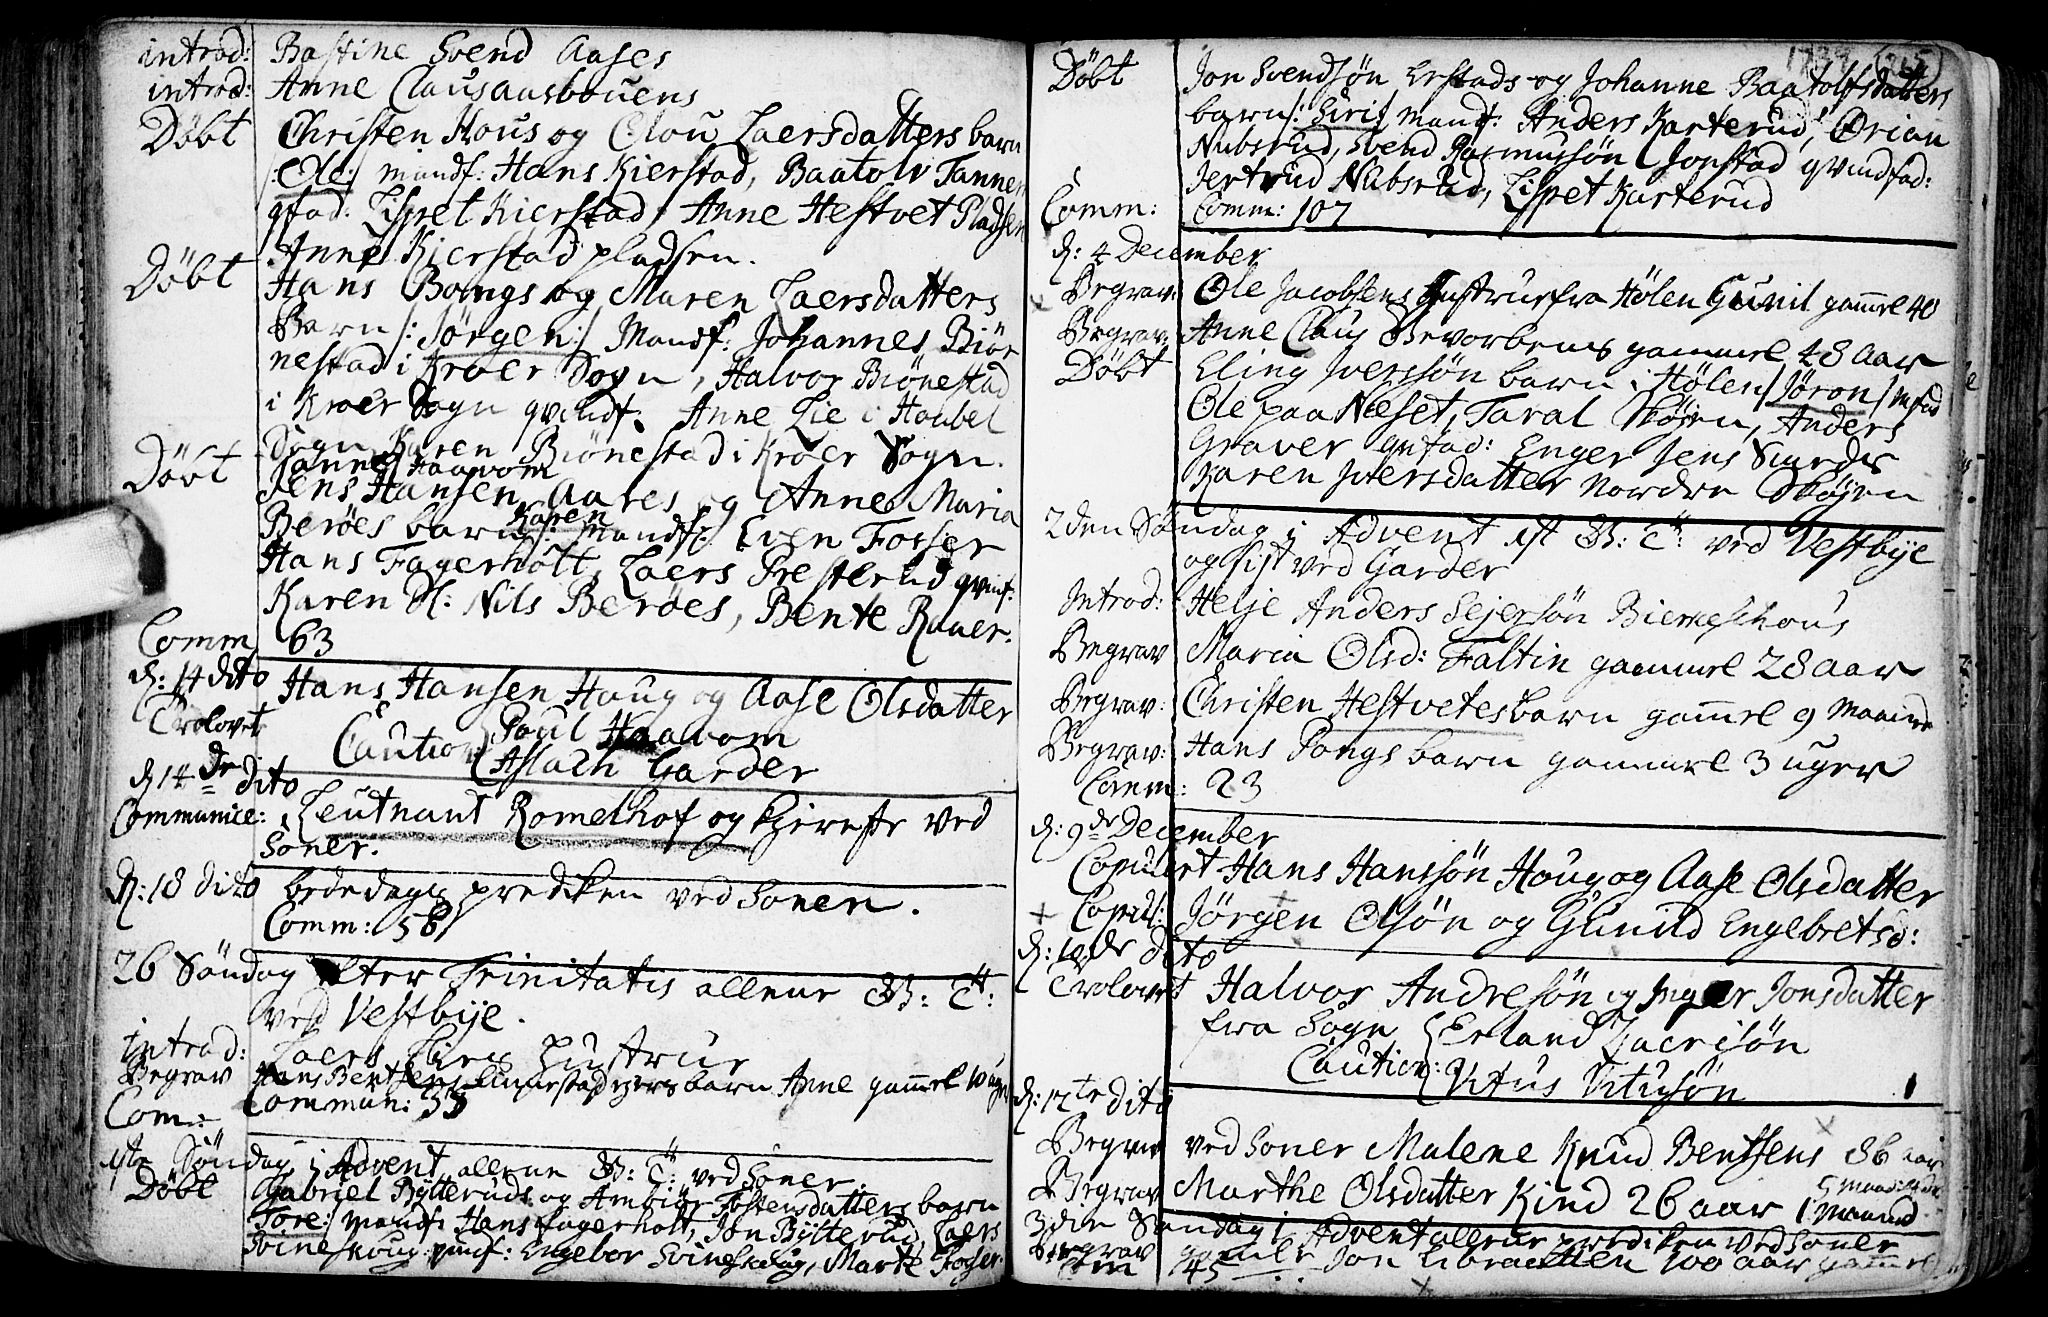 introd: Bastine Svend Aases
introd: Anne Claus aasbouens
Döbt Christen Hous og Olou Laersdatters barn
/:Ole:/ mandf: Hans Kierstad, Baatolv Tanner
qfad: Lispet Kierstad, Anne Hestvet Pladsen
Anne Kierstad pladsen.
Döbt Hans Bongs og Maren Laersdatters
Barn /:Jörgen:/ Mandf: Johannes Biör
nestad i Kroer Sogn, Halvor Biönestad
i Kroer Sogn qvindf: Anne Lie i Haabel
Sogn Karen Biönestad i Kroer Sogn.
Janne Haavom
Döbt Jens Hansen Aares og Anne Maria
Karen
Beröes barn /: mandf: Even Fosser
Hans Fagerholt, Laers Presterud qvinf:
Karen Sl: Nils Beröes, Bente Rauer.
Comm 63
d: 14 dito Hans Hansen Haug og Aase Olsdatter
Trolovet
Caution { Poul Haavom
Aslach Garder
d 14de dito
Communice: Leutnant Romelhof og Kjereste ved
Soner.
d: 18 dito bededags prediken ved Soner.
Comm: 58
26 Söndag efter Trinitatis allene B: T:
ved Vestbye.
introd: Laers Lies Hustrue
Begrav Hans Bentsens barn Anne gamel 10 uger
Com: Commun: 33
1ste Söndag i Advent allene B: T: ved Soner
Döbt Gabriel Bytteruds og Tostensdatters barn
Tore: mandf: Hans Fagerholt, Jon Bytterud, Laers
Svineskoug qvinf: Engebor Svineskoug, Marte Fosser.
Döbt Jon Svendsön Erstads og Johanne Baatolfsdatters
barn /:Siri:/ mandf: Anders Karterud, Örian
Nubsrud, Svend Rasmussön Jonstad qvindfad:
Jertrud Nubsrud, Lispet Karterud
Comm: Comm: 107
d: 4 December
Begrav: Ole Jacobsens Hustrue fra Hölen Gunil gammel 40
Begrav: Anne Claus Bevorbens gammel 48 aar
Döbt Eling Iversön barn i Hölen /Jöron/ Mfad
Ole paa Næset, Taral Sköjen, Anders
Graver qvfad: Enger Jens
Karen Iversdatter Nordre Sköjen
2den Söndag i Advent 1st B: T: ved Vestbye
og sist ved Garder
Introd: Helje Anders Sejersön Bierkeshous
Begrav Maria Olsd: Faltin gammel 28 aar
Begrav: Christen Hestvetes barn gamel 9 Maaneder
Begrav: Hans Pongs barn gammel 3 uger
Comm: 23
d: 9de December
Copulert Hans Hanssön Houg og Aase Olsdatter
Copul: Jörgen Olsön og Gunild Engebretsd:
d: 10de dito
Trolovet Halvor Andresön og Inger Jonsdatter
fra Sogn { Erland Zacrisön
Caution: Vitus Vitusön
d: 12te dito
Begrav ved Soner Malene Knud Bentsens 86 aar
Begrav Marthe Olsdatter Kind 26 aar 1 Maaned
3die Söndag i Advent allene prediken ved Soner
Begrav gamle Jon 100 aar gammel
Com 45